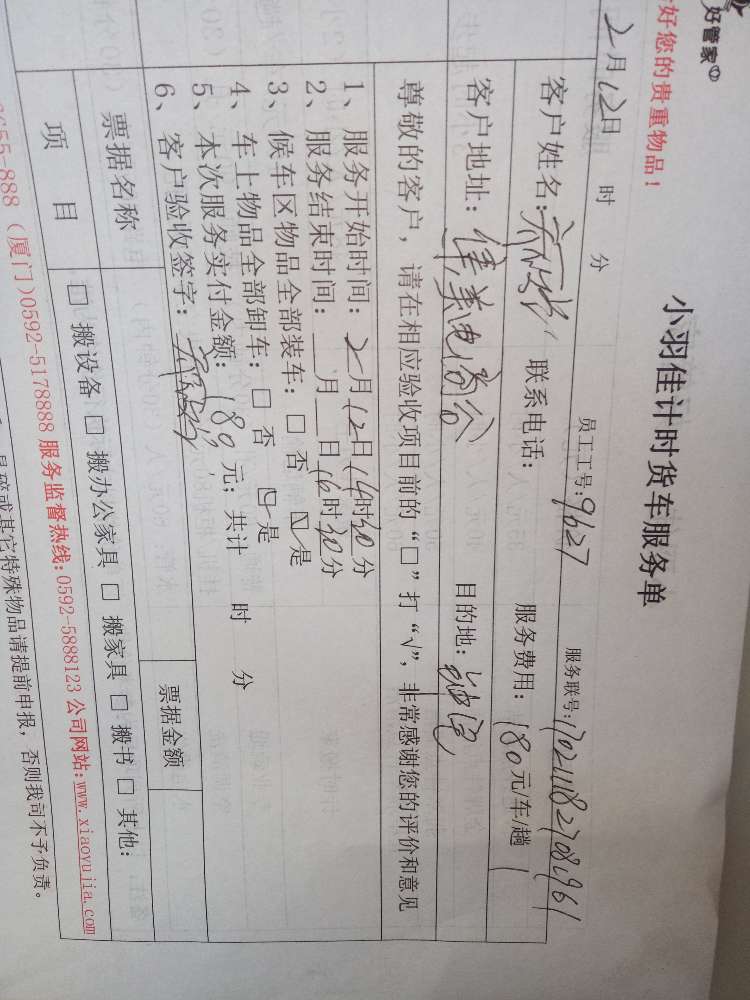 好管家
好您的贵重物品！
小羽佳计时货车服务单
2月12日 时 分 员工工号：9627 服务联号：17021182708961
客户姓名： 联系电话： 服务费用：180元/车/趟
客户地址：佳美电商谷 目的地：
尊敬的客户，请在相应验收项目前的“□”打“√”，非常感谢您的评价和意见
1、服务开始时间：2月12日14时30分
2、服务结束时间：__月__日16时30分
3、候车区物品全部装车：□ 否 ☑ 是
4、车上物品全部卸车：□ 否 ☑ 是
5、本次服务实付金额：180元；共计 时 分
6、客户验收签字：
票据名称 票据金额
项 目 □ 搬设备 □ 搬办公家具 □ 搬家具 □ 搬书 □ 其他：
655-888 （厦门）0592-5178888 服务监督热线：0592-5888123 公司网站：www.xiaoyujia.com
易碎或其它特殊物品请提前申报，否则我司不予负责。